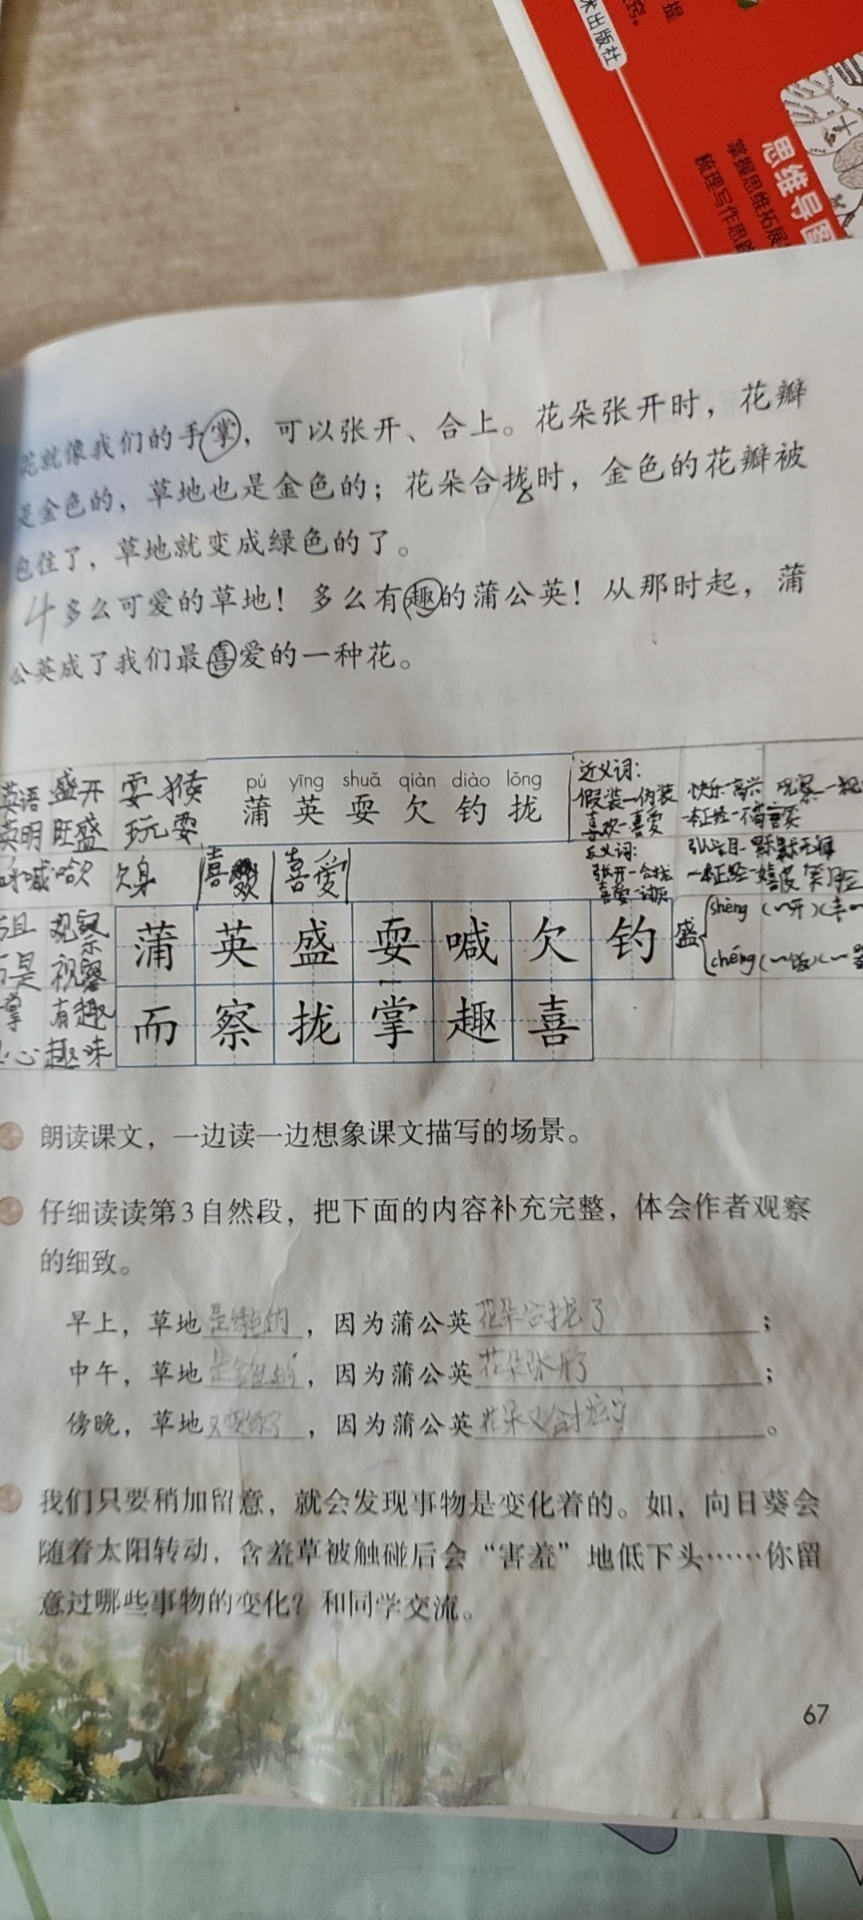 术出版社
提
穷。
思维导图
掌握思维拓展
梳理写作思路
花就像我们的手掌，可以张开、合上。花朵张开时，花瓣
是金色的，草地也是金色的；花朵合拢时，金色的花瓣被
包住了，草地就变成绿色的了。
4 多么可爱的草地！多么有趣的蒲公英！从那时起，蒲
公英成了我们最喜爱的一种花。
英语 盛开 耍猴
英明 旺盛 玩耍
呼喊 哈欠 欠身 喜欢 喜爱
pú yīng shuǎ qiàn diào lǒng
蒲 英 耍 欠 钓 拢
近义词：
假装—伪装 快乐—高兴 观察—观
喜欢—喜爱 一本正经—不苟言笑
反义词： 引人注目—默默无闻
张开—合拢 一本正经—嬉皮笑脸
喜爱—讨厌
观察
视察
有趣
心 趣味
蒲 英 盛 耍 喊 欠 钓
而 察 拢 掌 趣 喜
盛 shèng（一开）（丰一
chéng（一饭）（一
朗读课文，一边读一边想象课文描写的场景。
仔细读读第3自然段，把下面的内容补充完整，体会作者观察
的细致。
早上，草地是绿色的，因为蒲公英花朵合拢了；
中午，草地是金色的，因为蒲公英花朵张开了；
傍晚，草地又变绿了，因为蒲公英花朵又合拢了。
我们只要稍加留意，就会发现事物是变化着的。如，向日葵会
随着太阳转动，含羞草被触碰后会“害羞”地低下头……你留
意过哪些事物的变化？和同学交流。
67